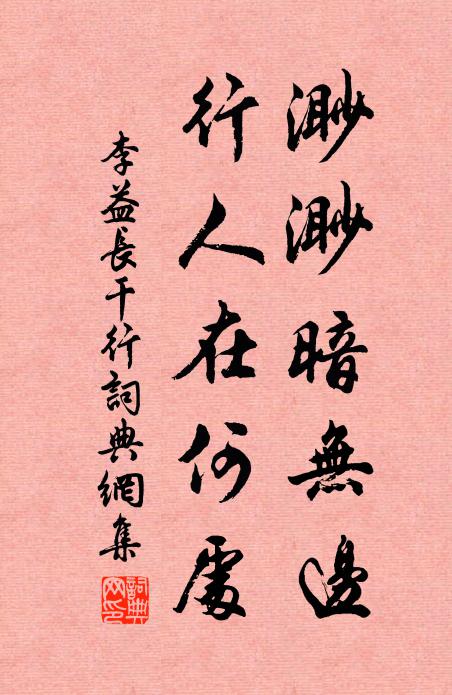 渺渺暗無邊
行人在何處
李益長干行詞典網集
詞典
网印